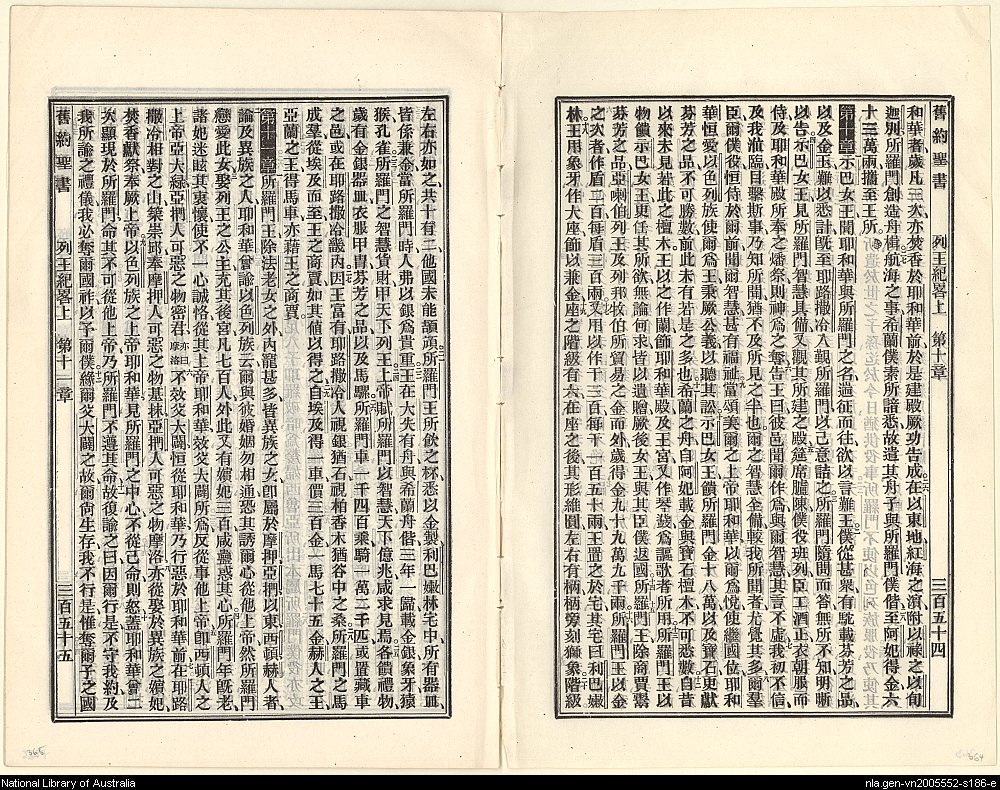 舊約聖書 列王紀畧上 第十章 三百五十四
和華者歲凡三次亦焚香於耶和華前於是建殿厥功告成在以東地紅海之濱附以祿之以旬
迦別所羅門創造舟楫航海之事希蘭僕素所諳悉故遣其舟子與所羅門僕偕至阿妃得金六
十三萬兩攜至王所
第十章示巴女王聞耶和華與所羅門之名遄征而往欲以言難王僕從甚衆有駝載芬芳之品
以及金玉難以悉計旣至耶路撒冷入覲所羅門以己意詰之所羅門隨問而答無所不知明晰
以告示巴女王見所羅門智慧具備又觀其所建之殿筵席臚陳僕役班列臣工酒正衣朝服而
侍及耶和華殿所奉之燔祭則神爲之奪告王曰彼邑聞爾作爲與爾智慧其言不虛我初不信
及我涖臨目擊斯事乃知所聞猶不及所見之半也爾之智慧全備較我所聞者尤覺其多爾羣
臣爾僕役恒侍於爾前聞爾智慧甚有福祉當頌美爾之上帝耶和華以爾爲悅使繼國位耶和
華恒愛以色列族使爾爲王秉厥公義以聽其訟示巴女王饋所羅門金十八萬以及寶石更獻
芬芳之品不可勝數前此未有若是之多也希蘭之舟自阿妃載金與寶石檀木不可悉數自昔
以來未見若此之檀木王以之作闌飾耶和華殿及王宮又作琴瑟爲謳歌者所用所羅門王以
物饋示巴女王更任其所欲無論何求皆以遺贈厥後女王與其臣僕返國所羅門王除商賈鬻
芬芳之品亞喇伯列王及列邦牧伯所貿易之金而外歲得金九十九萬九千兩所羅門王以金
之次者作盾二百每盾三百兩又用以作干三百每干一百五十兩王置之於宅其宅曰利巴嫩
林王用象牙作大座飾以兼金座之階級有六在座之後其形維圓左右有柄柄旁刻獅象階級
左右亦如之共十有二他國未能頡頏所羅門王所飲之杯悉以金製利巴嫩林宅中所有器皿
皆係兼金當所羅門時人弗以銀爲貴重王在大失有舟與希蘭舟偕三年一歸載金銀象牙猿
猴孔雀所羅門之智慧貨財甲天下列王上帝賦所羅門以智慧天下億兆咸求見焉各饋禮物
歲有金銀器皿衣服甲冑芬芳之品以及馬騾所羅門車一千四百乘騎一萬二千四或置藏車
之邑或在耶路撒冷畿內因王富有耶路撒冷人視銀猶石視柏香木猶谷中之桑所羅門之馬
成羣從埃及而至王之商賈如其値以得之自埃及得一車價三百金一馬七十五金赫人之王
亞蘭之王得馬車亦藉王之商賈
第十一章所羅門王除法老女之外內寵甚多皆異族之女卽屬於摩押亞捫以東西頓赫人者
論及異族之人耶和華曾諭以色列族云爾與彼婚姻勿相通恐其誘爾心從他上帝然所羅門
戀愛此女娶列王之公主充其後宮凡七百人外此又有嬪妃三百咸蠱惑其心所羅門年旣老
諸妃迷眩其衷懷使不一心誠恪從其上帝耶和華效父大闢所爲反從事他上帝卽西頓人之
上帝亞大綠亞捫人可惡之物密君亦曰摩洛不效父大闢恒從耶和華乃行惡於耶和華前在耶路
撒冷相對之山築崇邱奉摩押人可惡之物基抹亞捫人可惡之物摩洛亦從娶於異族之嬪妃
焚香獻祭奉厥上帝以色列族之上帝耶和華見所羅門之中心不從己命則怒蓋耶和華曾二
次顯現於所羅門命其不可從他上帝乃所羅門不遵其命故復諭之曰因爾行是不守我約及
我所諭之禮儀我必奪爾國祚以予爾僕緣爾父大闢之故爾尙生存我不行是惟奪爾子之國
舊約聖書 列王紀畧上 第十一章 三百五十五
365
364
National Library of Australia
nla.gen-vn2005552-s186-e